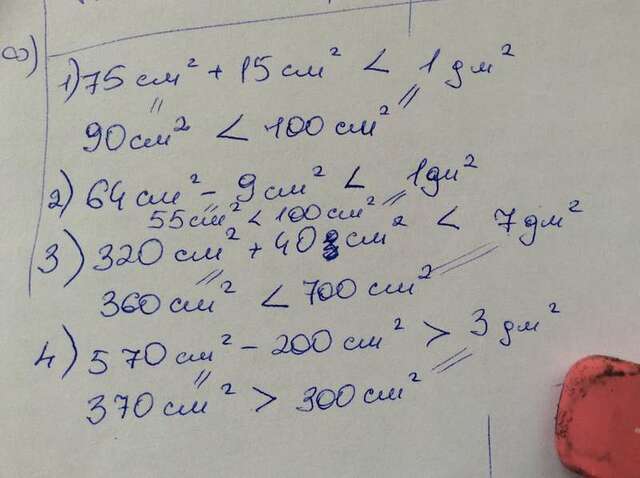 8)
1) 75 см² + 15 см² < 1 дм²
90 см² < 100 см²
2) 64 см² - 9 см² < 1 дм²
55 см² < 100 см²
3) 320 см² + 40 см² < 7 дм²
360 см² < 700 см²
4) 570 см² - 200 см² > 3 дм²
370 см² > 300 см²